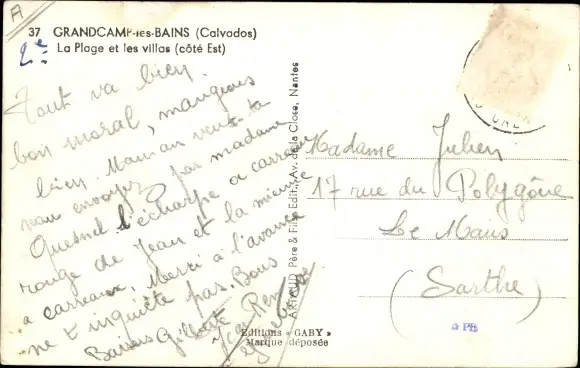 A
37 GRANDCAMP-les-BAINS (Calvados)
2e
La Plage et les villas (côté Est)
Tout va bien.
bon moral, mangeons
bien. Maman veux-tu
nous envoyer par madame
Quesnel l'écharpe a carreaux
rouge de Jean et la mienne
a carreaux. Merci à l'avance
ne t'inquiète pas. Bons
Baisers Gilberte
ARTAUD Père & Fils, Edit., Av. de la Close, Nantes
Madame Julien
17 rue du Polygône
Le Mans
(Sarthe)
Editions « GABY »
Marque déposée